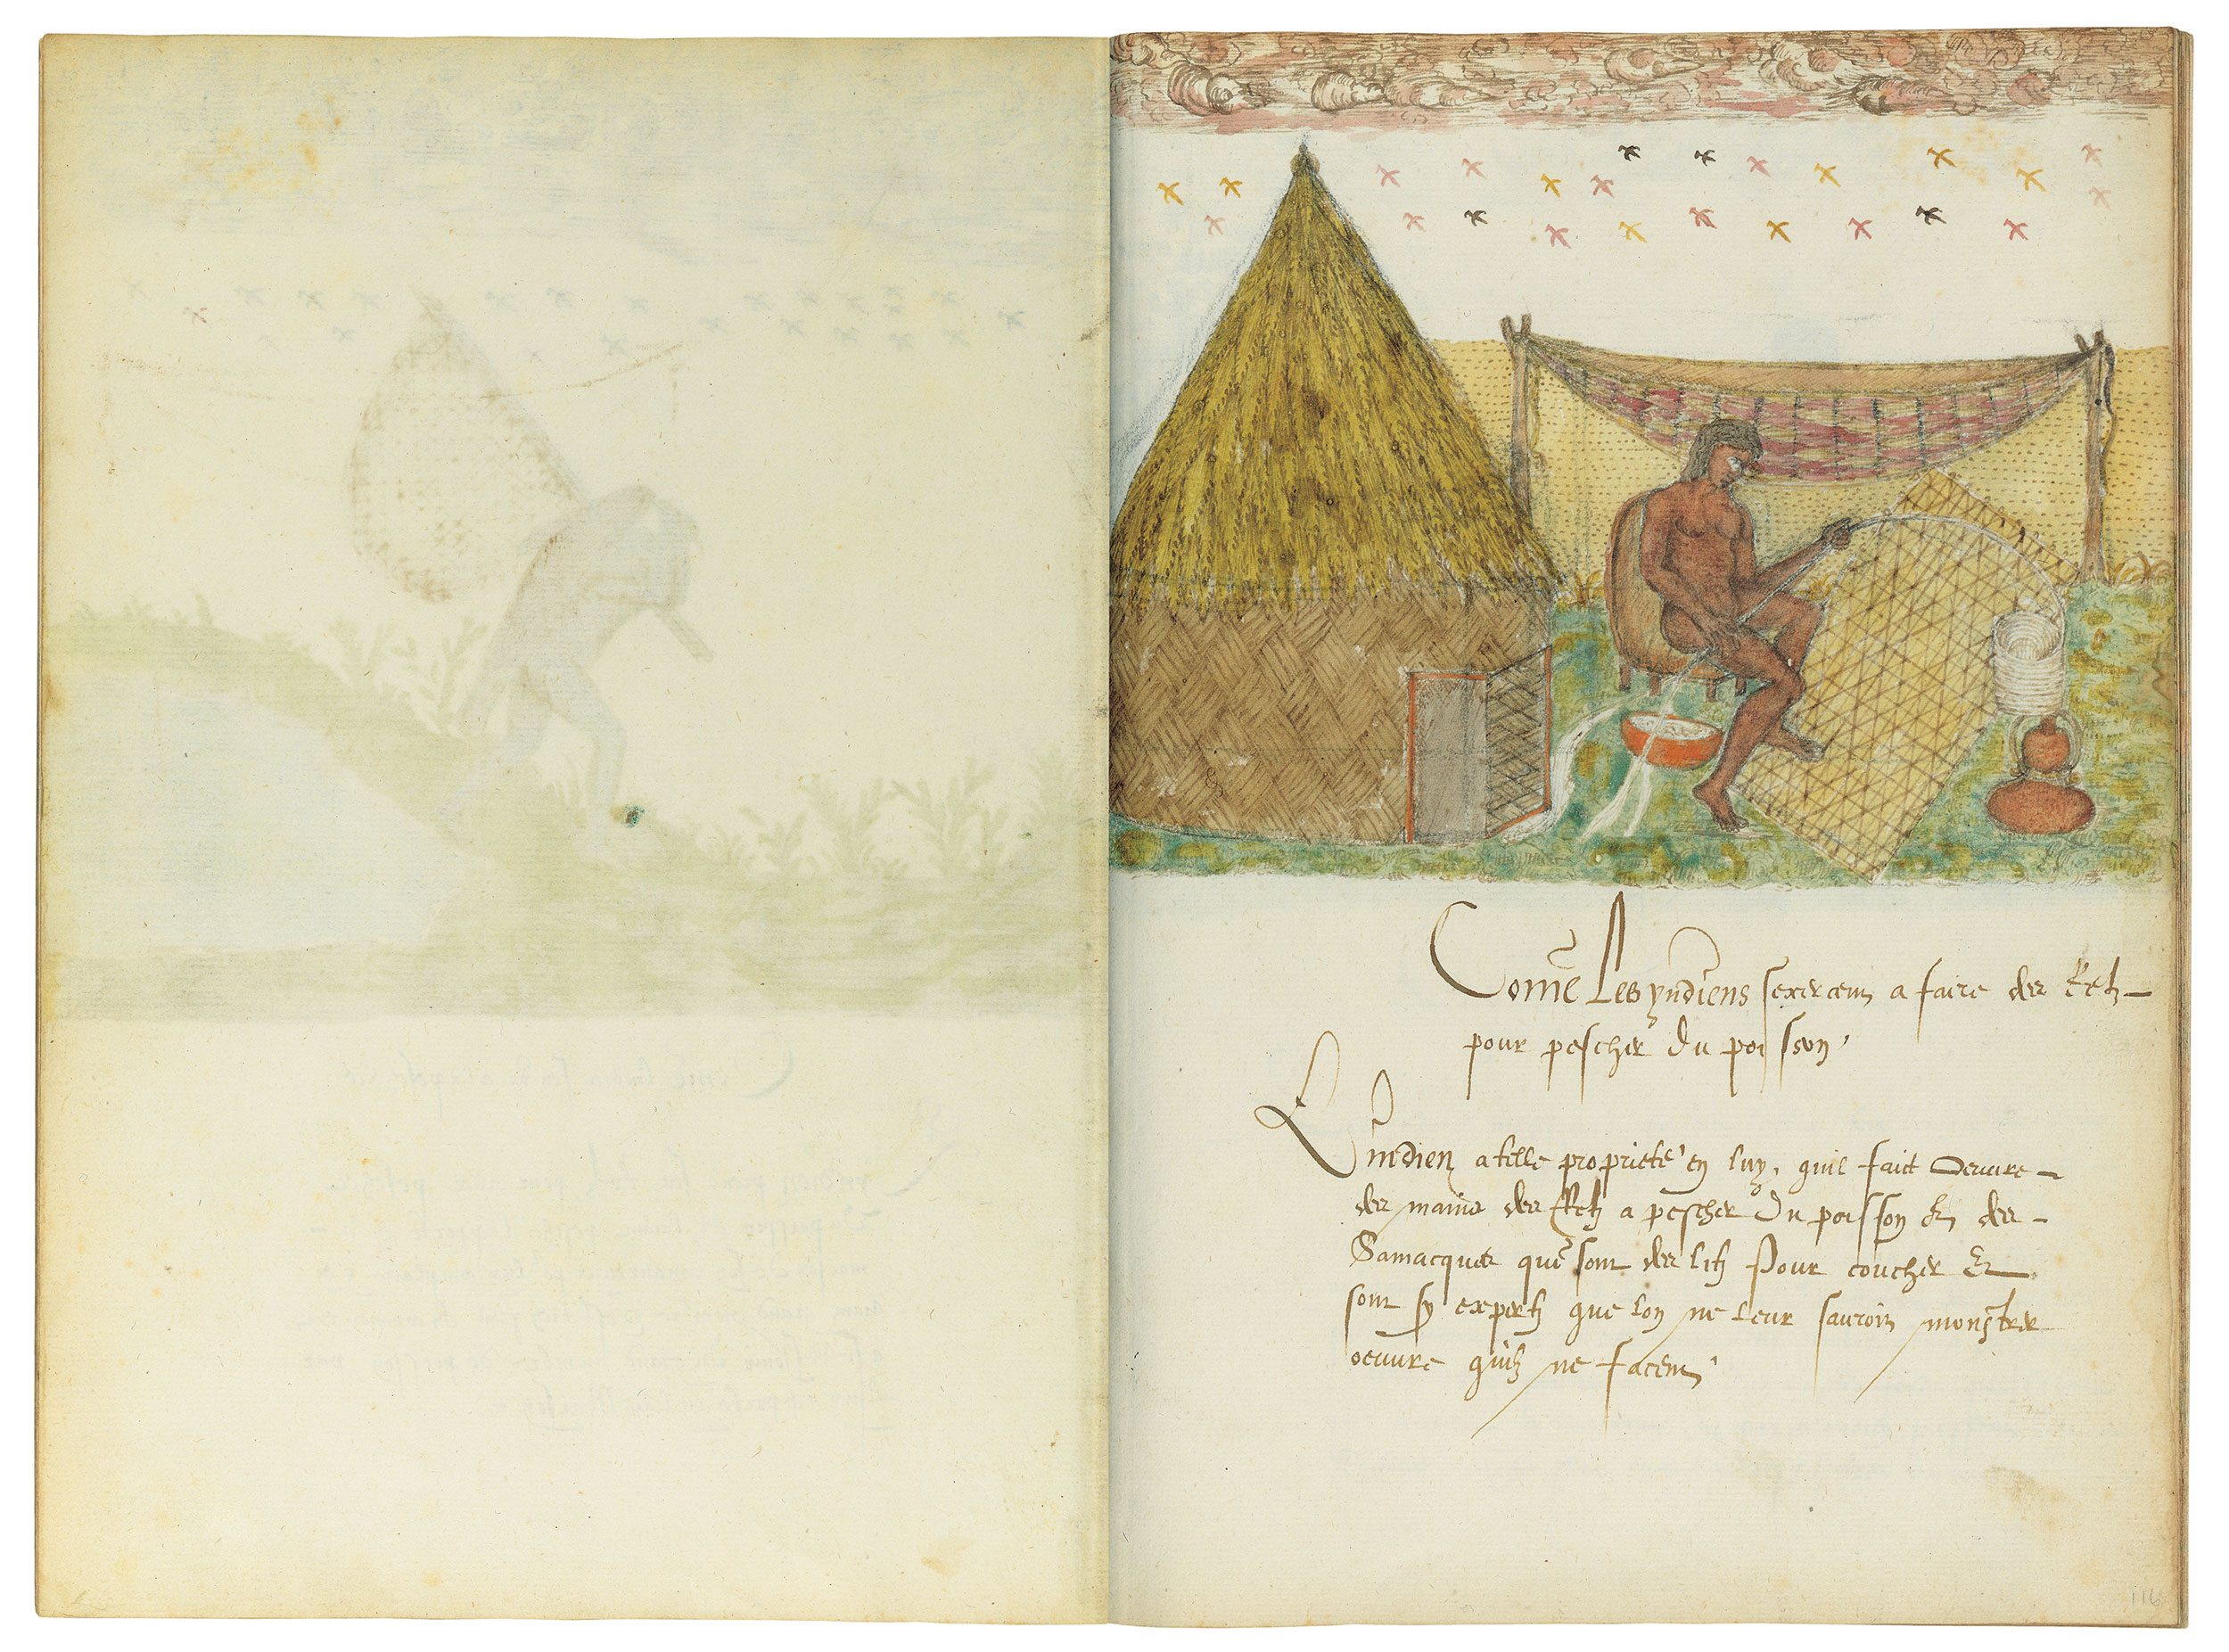 Come Les yndiens sexercent a faire des Retz
pour pescher du poisson
L'indien a telle propriete en luy, quil faict oeuvre
des mains des Retz a pescher du poisson Et des
Samacques que sont des litz Pour coucher Et
sont sy expertz que lon ne leur sauroit monstrer
oeuvre quilz ne facent
116